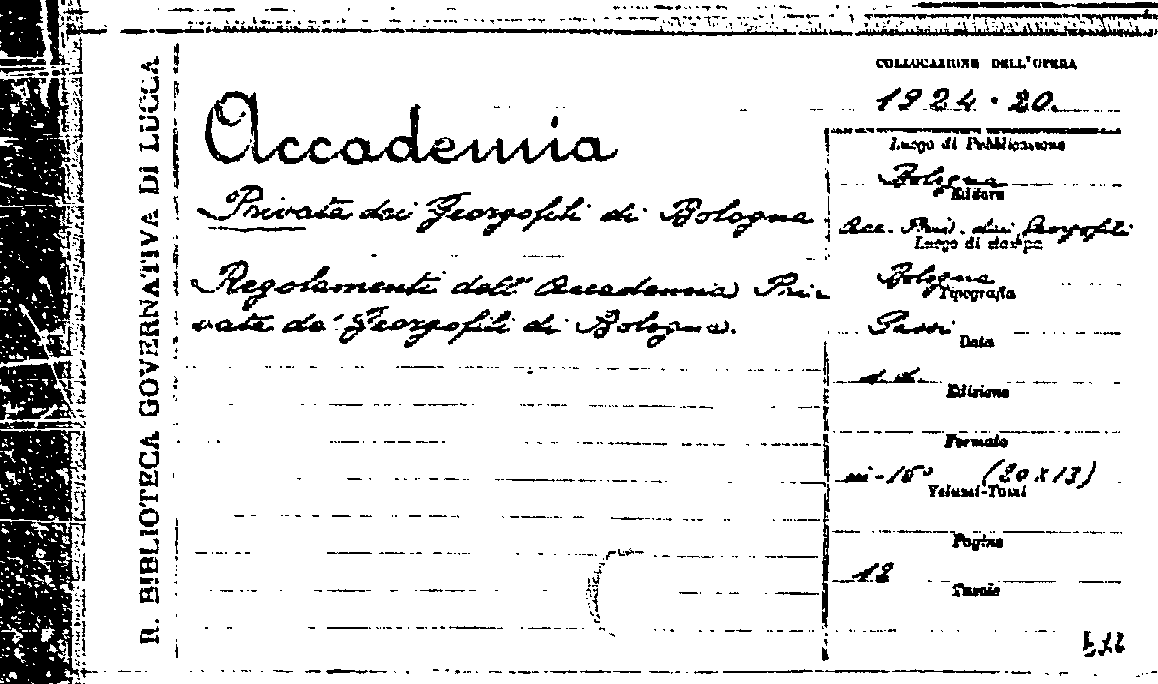 R. BIBLIOTECA GOVERNATIVA DI LUCCA
COLLOCAZIONE DELL'OPERA
1924 · 20.
Accademia
Privata dei Georgofili di Bologna
Regolamenti dell' Accademia Pri-
vata de' Georgofili di Bologna.
Luogo di Pubblicazione
Bologna
Editore
Acc. Priv. dei Georgofili
Luogo di stampa
Bologna
Tipografia
Sassi
Data
s. d.
Edizione
Formato
in-16° (20 x 13)
Volumi-Tomi
Pagine
12
Tavole